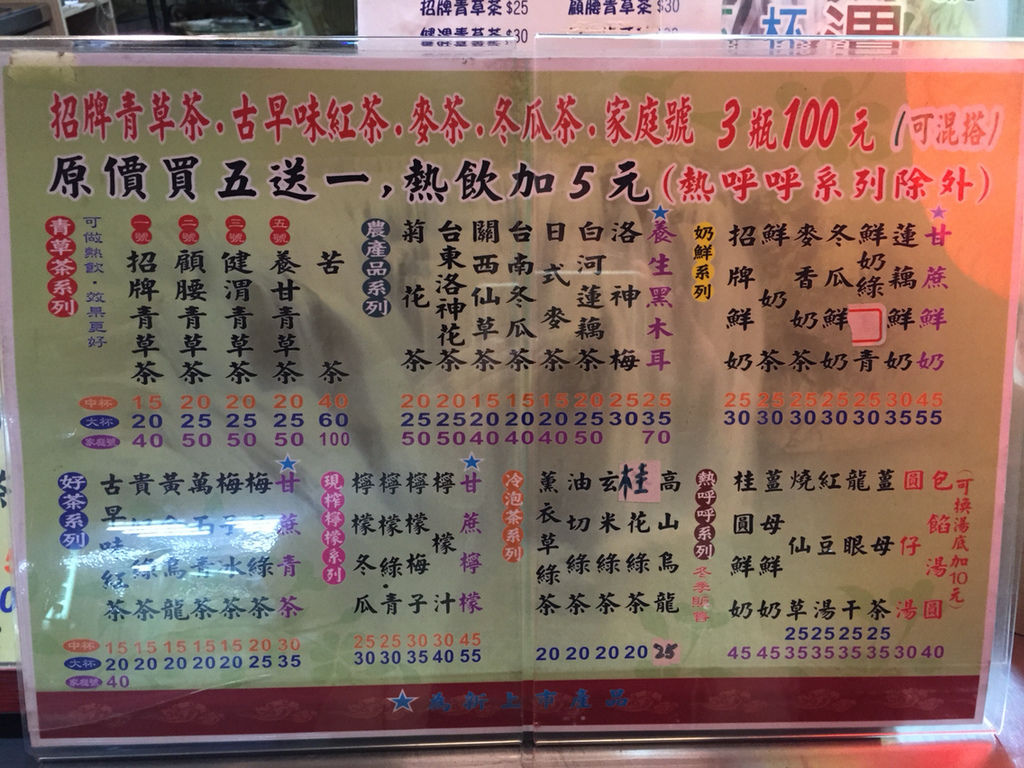 招牌青草茶 $25
顧腰青草茶 $30
健渭青草茶 $30
杯
潤
招牌青草茶.古早味紅茶.麥茶.冬瓜茶.家庭號 3瓶100元 (可混搭)
原價買五送一,熱飲加5元(熱呼呼系列除外)
青草茶系列
可做熱飲·效果更好
一號 招牌青草茶
二號 顧腰青草茶
三號 健渭青草茶
五號 養甘青草茶
苦茶
中杯 15 20 20 20 40
大杯 20 25 25 25 60
家庭號 40 50 50 50 100
農產品系列
菊花茶
台東洛神花茶
關西仙草茶
台南冬瓜茶
日式麥茶
白河蓮藕茶
洛神梅
養生黑木耳
20 20 15 15 15 20 25 25
25 25 20 20 20 25 30 35
50 50 40 40 40 50 70
奶鮮系列
招牌鮮奶
鮮奶茶
麥香奶茶
冬瓜鮮奶
鮮奶綠青
蓮藕鮮奶
甘蔗鮮奶
25 25 25 25 25 30 45
30 30 30 30 30 35 55
好茶系列
古早味紅茶
貴綠茶
黃烏龍
萬石青茶
梅冰茶
梅綠茶
甘蔗青茶
中杯 15 15 15 15 15 20 30
大杯 20 20 20 20 20 25 35
家庭號 40
現榨檸檬系列
檸檬冬瓜
檸檬綠.青
檸檬梅子
檸檬汁
甘蔗檸檬
25 25 30 30 45
30 30 35 40 55
冷泡茶系列
薰衣草綠茶
油切綠茶
玄米綠茶
桂花綠茶
高山烏龍
20 20 20 20 25
熱呼呼系列 冬季販售
桂圓鮮奶
薑母鮮奶
燒仙草
紅豆湯
龍眼干
薑母茶
圓仔湯
包餡湯圓
(可換湯底加10元)
25 25 25 25
45 45 35 35 35 35 30 40
為新上市產品